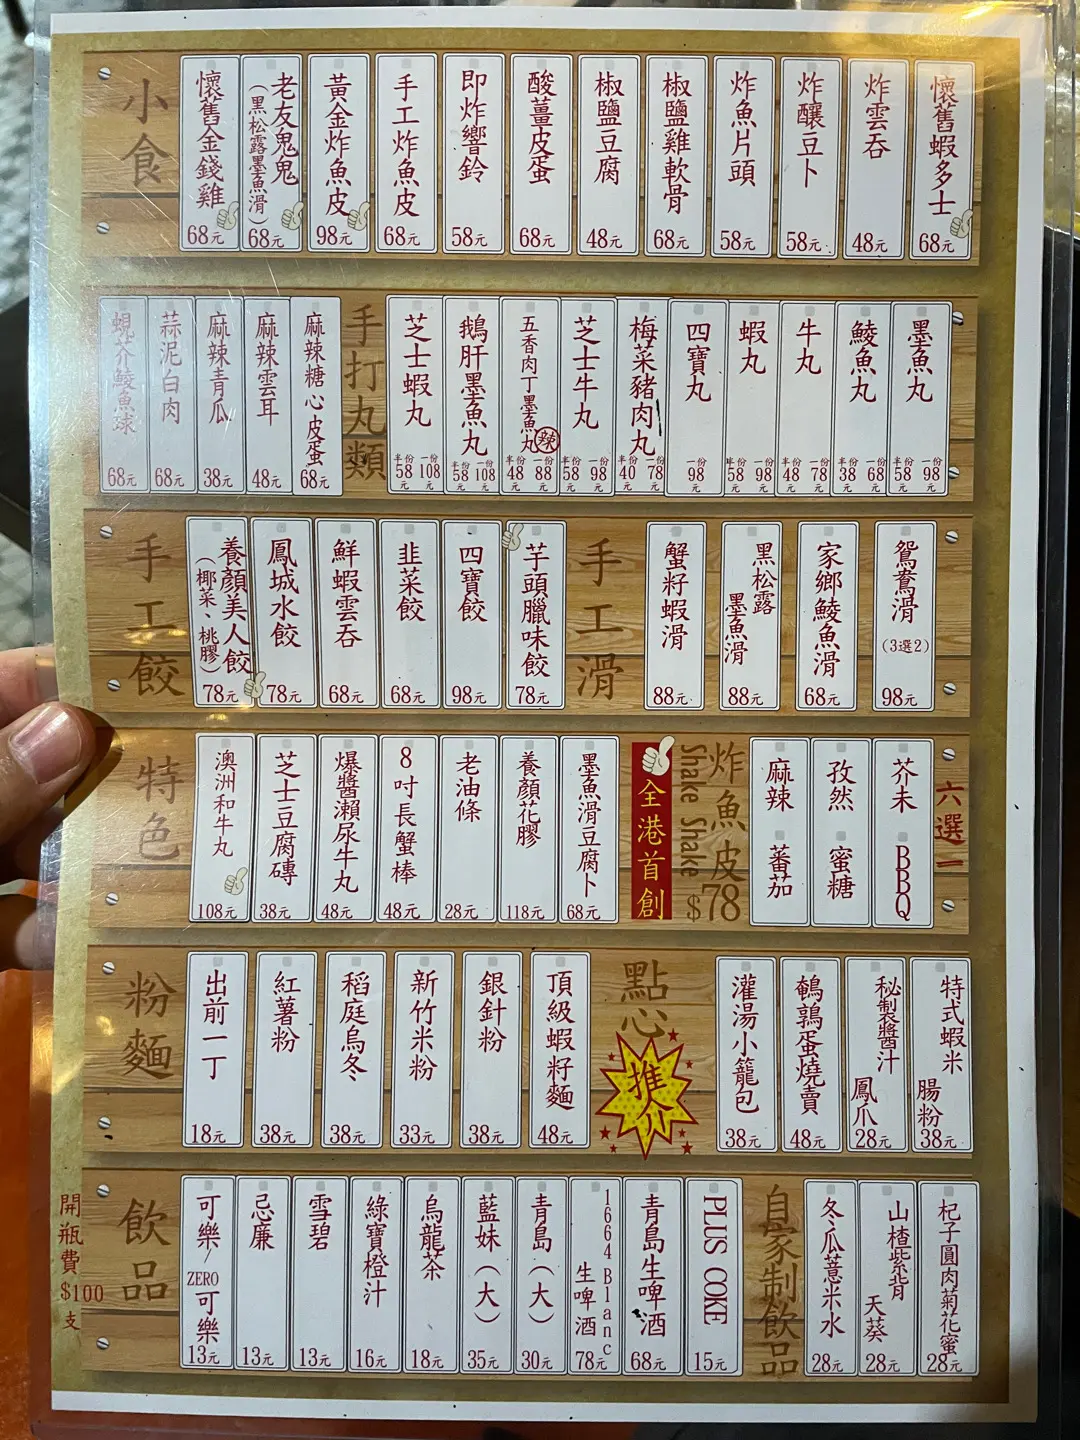 小食
懷舊金錢雞 68元
老友鬼鬼 (黑松露墨魚滑) 68元
黃金炸魚皮 98元
手工炸魚皮 68元
即炸響鈴 58元
酸薑皮蛋 68元
椒鹽豆腐 48元
椒鹽雞軟骨 68元
炸魚片頭 58元
炸釀豆卜 58元
炸雲吞 48元
懷舊蝦多士 68元
蜆芥鯪魚球 68元
蒜泥白肉 68元
麻辣青瓜 38元
麻辣雲耳 48元
麻辣糖心皮蛋 68元
手打丸類
芝士蝦丸 半份58元 一份108元
鵝肝墨魚丸 半份58元 一份108元
五香肉丁墨魚丸 辣 半份48元 一份88元
芝士牛丸 半份58元 一份98元
梅菜豬肉丸 半份40元 一份78元
四寶丸 一份98元
蝦丸 半份58元 一份98元
牛丸 半份48元 一份78元
鯪魚丸 半份38元 一份68元
墨魚丸 半份58元 一份98元
手工餃
養顏美人餃 (椰菜、桃膠) 78元
鳳城水餃 78元
鮮蝦雲吞 68元
韭菜餃 68元
四寶餃 98元
芋頭臘味餃 78元
手工滑
蟹籽蝦滑 88元
黑松露墨魚滑 88元
家鄉鯪魚滑 68元
鴛鴦滑 (3選2) 98元
特色
澳洲和牛丸 108元
芝士豆腐磚 38元
爆醬瀨尿牛丸 48元
8吋長蟹棒 48元
老油條 28元
養顏花膠 118元
墨魚滑豆腐卜 68元
全港首創
Shake Shake
炸魚皮 $78
麻辣 蕃茄
孜然 蜜糖
芥末 BBQ
六選一
粉麵
出前一丁 18元
紅薯粉 38元
稻庭烏冬 38元
新竹米粉 33元
銀針粉 38元
頂級蝦籽麵 48元
點心
推介
灌湯小籠包 38元
鵪鶉蛋燒賣 48元
秘製醬汁鳳爪 28元
特式蝦米腸粉 38元
開瓶費 $100 支
飲品
可樂/ZERO可樂 13元
忌廉 13元
雪碧 13元
綠寶橙汁 16元
烏龍茶 18元
藍妹(大) 35元
青島(大) 30元
1664 Blanc 生啤酒 78元
青島生啤酒 68元
PLUS COKE 15元
自家制飲品
冬瓜薏米水 28元
山楂紫背天葵 28元
杞子圓肉菊花蜜 28元